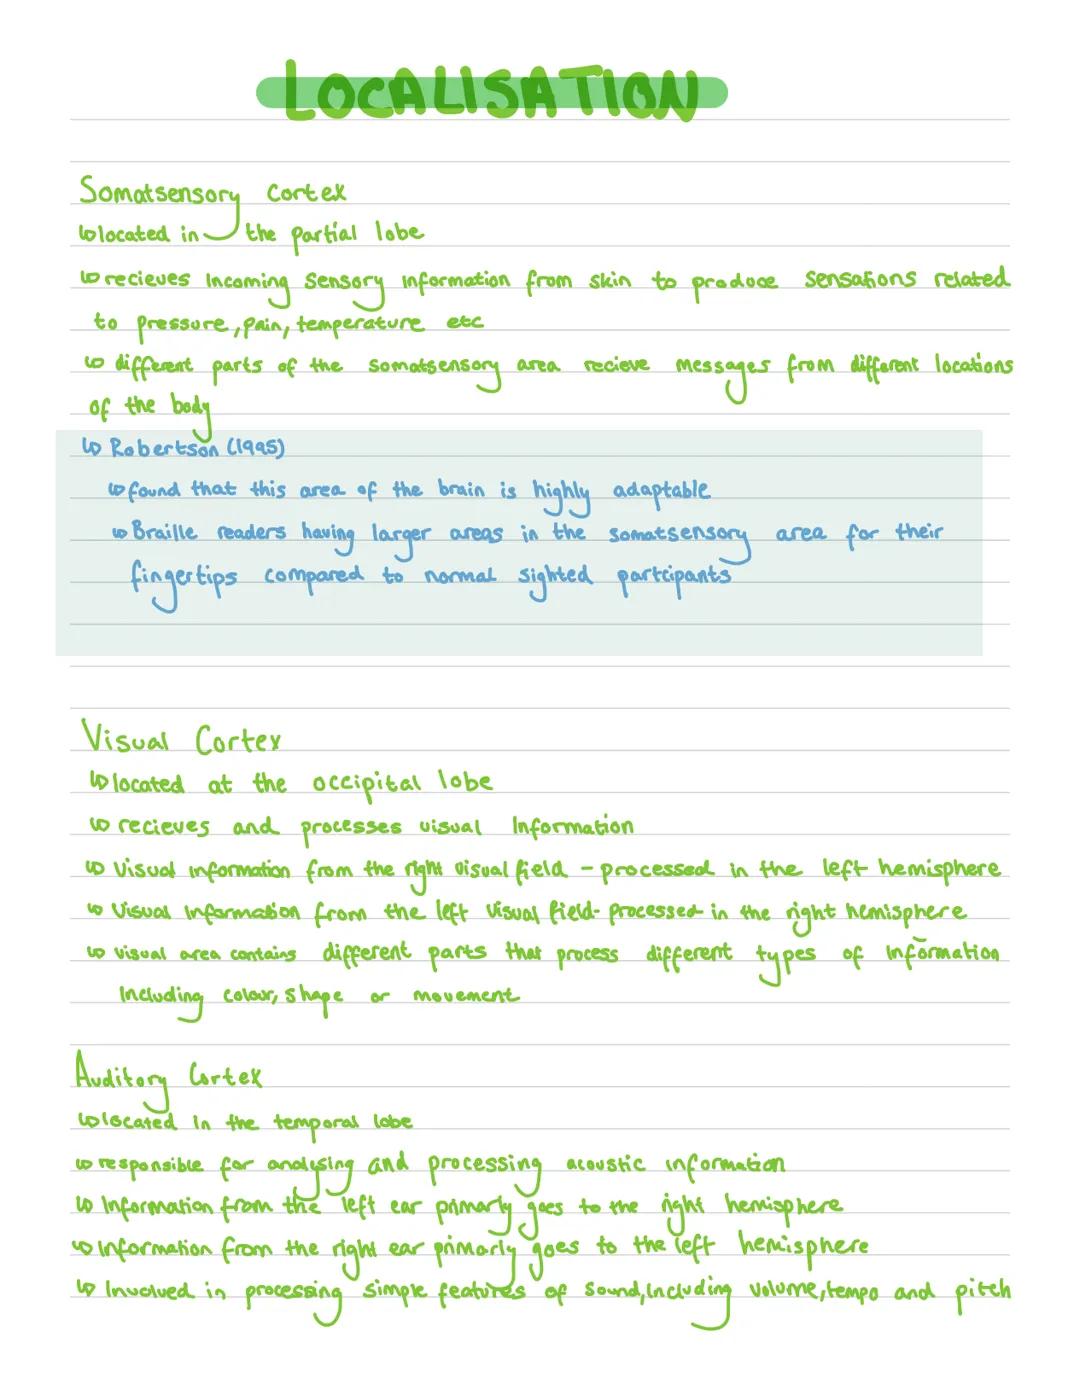 LOCALISATION
Somatsensory Cortex
↳ located in the partial lobe
↳ recieves Incoming Sensory information from skin to produce sensations related
to pressure, pain, temperature etc
↳ different parts of the somatsensory area recieve messages from different locations
of the body
↳ Robertson (1995)
↳ found that this area of the brain is highly adaptable
↳ Braille readers having larger areas in the somatsensory area for their
fingertips compared to normal sighted partcipants
Visual Cortex
↳ located at the occipital lobe
↳ recieves and processes visual Information
↳ Visual information from the right visual field - processed in the left hemisphere
↳ Visual Information from the left visual field - processed in the right hemisphere
↳ visual area contains different parts that process different types of information
Including colour, shape or movement
Auditory Cortex
↳ located in the temporal lobe
↳ responsible for analysing and processing acoustic information
↳ Information from the left ear primarly goes to the right hemisphere
↳ Information from the right ear primarly goes to the left hemisphere
↳ Involved in processing simple features of sound, Including volume, tempo and pitch